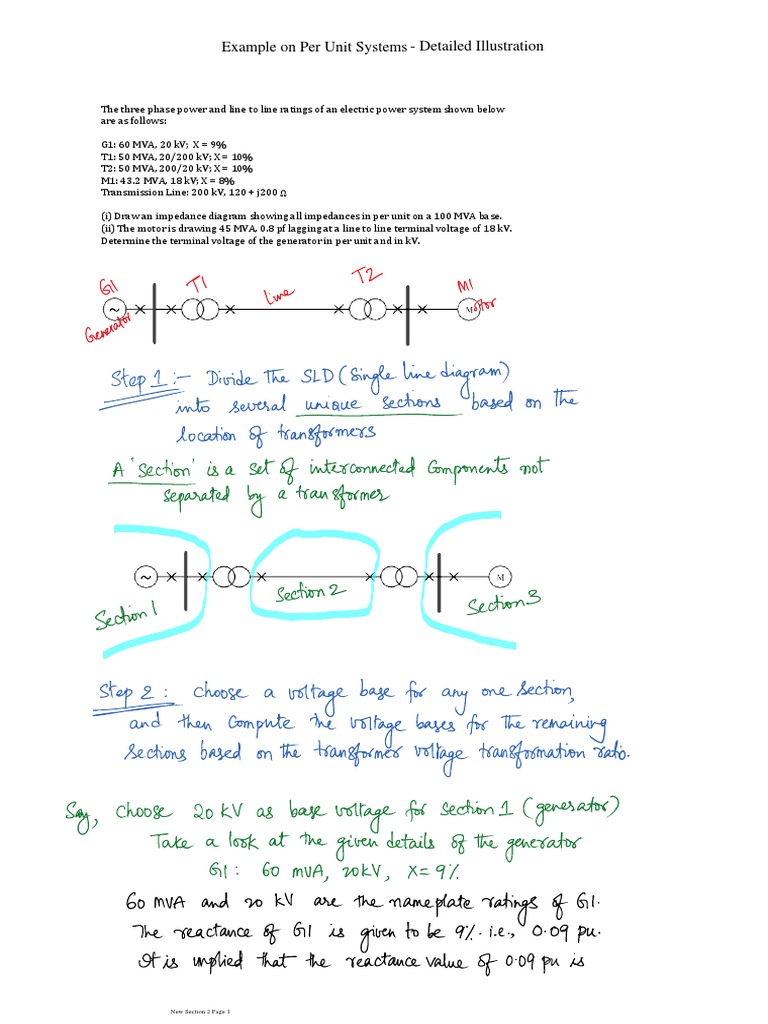 Example on Per Unit Systems - Detailed Illustration
The three phase power and line to line ratings of an electric power system shown below
are as follows:
G1: 60 MVA, 20 kV; X = 9%
T1: 50 MVA, 20/200 kV; X = 10%
T2: 50 MVA, 200/20 kV; X = 10%
M1: 43.2 MVA, 18 kV; X = 8%
Transmission Line: 200 kV, 120 + j200 Ω
(i) Draw an impedance diagram showing all impedances in per unit on a 100 MVA base.
(ii) The motor is drawing 45 MVA, 0.8 pf lagging at a line to line terminal voltage of 18 kV.
Determine the terminal voltage of the generator in per unit and in kV.
G1 T1 Line T2 M1
~ M
Generator Motor
Step 1 :- Divide the SLD (Single line diagram)
into several unique sections based on the
location of transformers
A 'Section' is a set of interconnected Components not
separated by a transformer
~ M
Section 1 Section 2 Section 3
Step 2 : choose a voltage base for any one section,
and then compute the voltage bases for the remaining
sections based on the transformer voltage transformation ratio.
Say, choose 20 KV as base voltage for section 1 (generator)
Take a look at the given details of the generator
G1 : 60 MVA, 20KV, X = 9%
60 MVA and 20 KV are the nameplate ratings of G1.
The reactance of G1 is given to be 9%. i.e., 0.09 pu.
It is implied that the reactance value of 0.09 pu is
New Section 2 Page 1